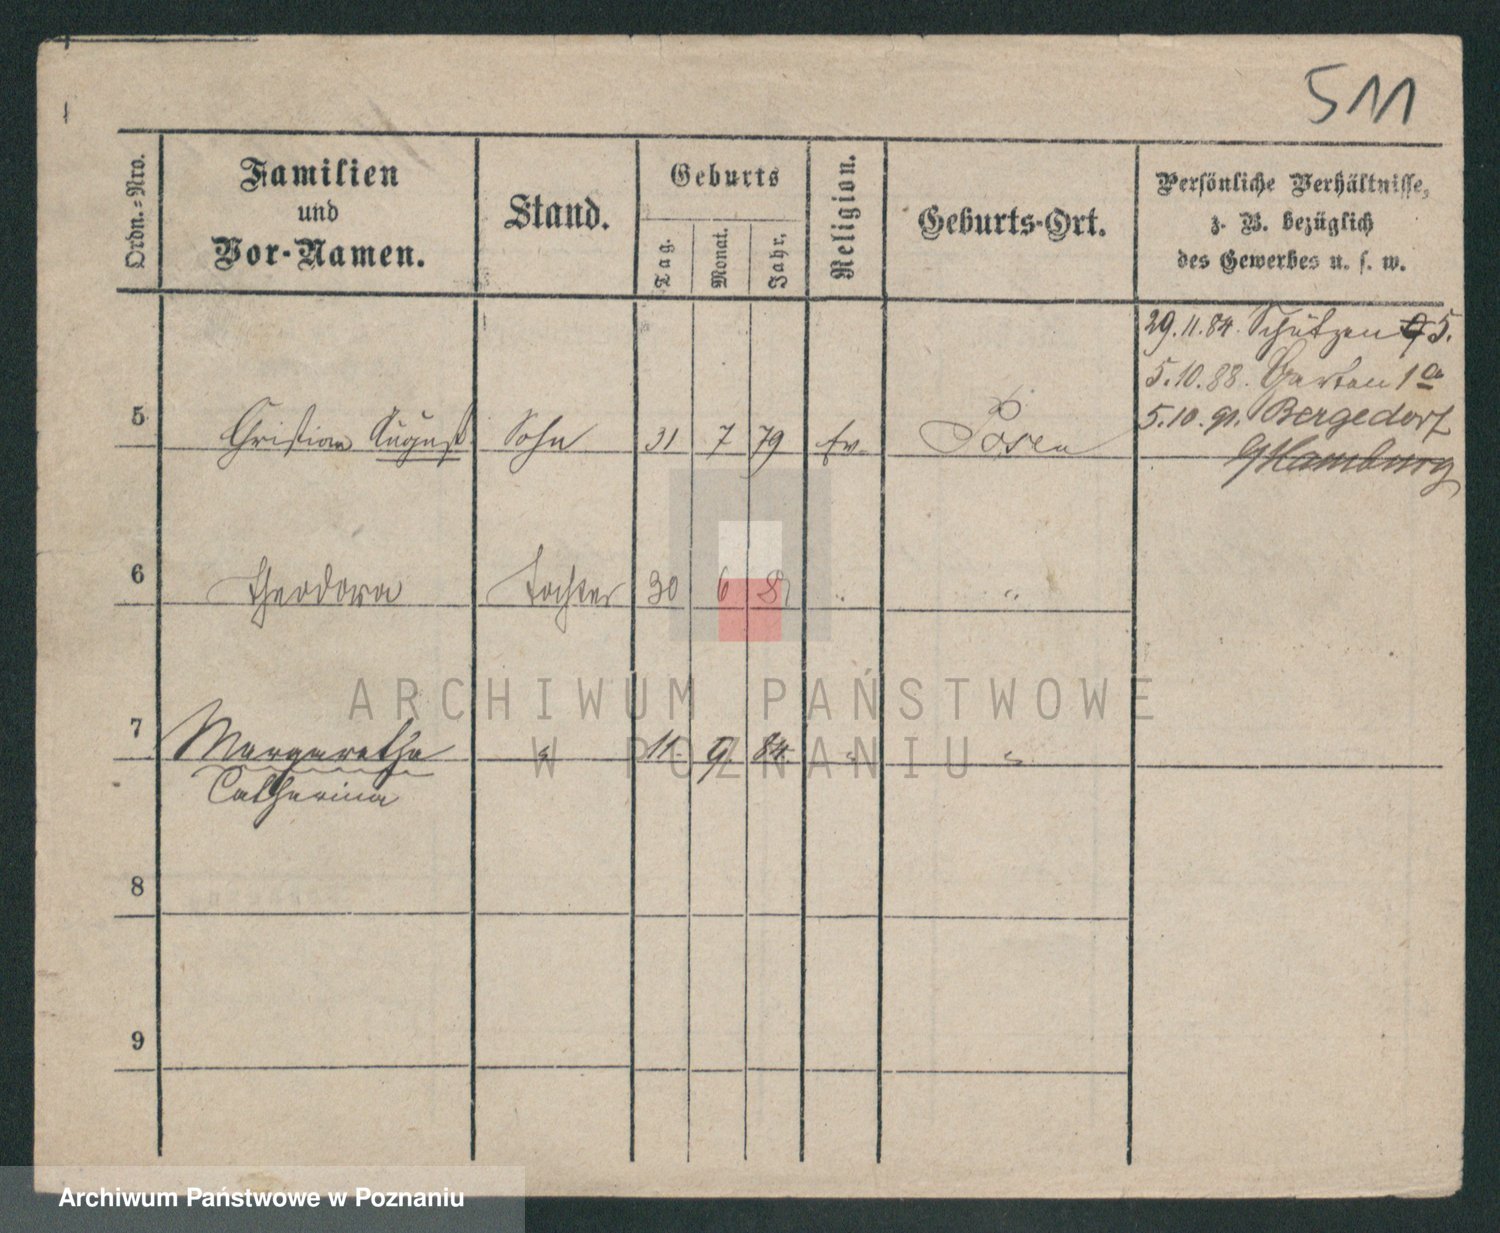 511
Ordn.-Nro.
Familien
und
Vor-Namen.
Stand.
Geburts
Tag.
Monat.
Jahr.
Religion.
Geburts-Ort.
Persönliche Verhältnisse,
z. B. bezüglich
des Gewerbes u. s. w.
29.11.84. Schützen 5.
5.10.88. Garten 1a
5.10.91. Bergedorf
Hamburg
5 Christian August Sohn 31 7 79 Ev. Posen
6 Theodora Tochter 30 6 8 " "
7 Margaretha " 11. 9. 84. " "
Catherina
8
9
ARCHIWUM PAŃSTWOWE
W POZNANIU
Archiwum Państwowe w Poznaniu